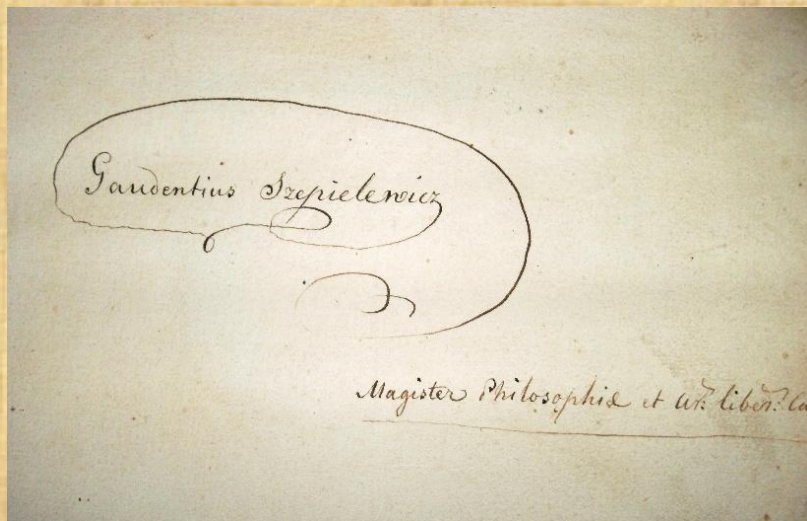 Gaudentius Szepielewicz
Magister Philosophiæ et